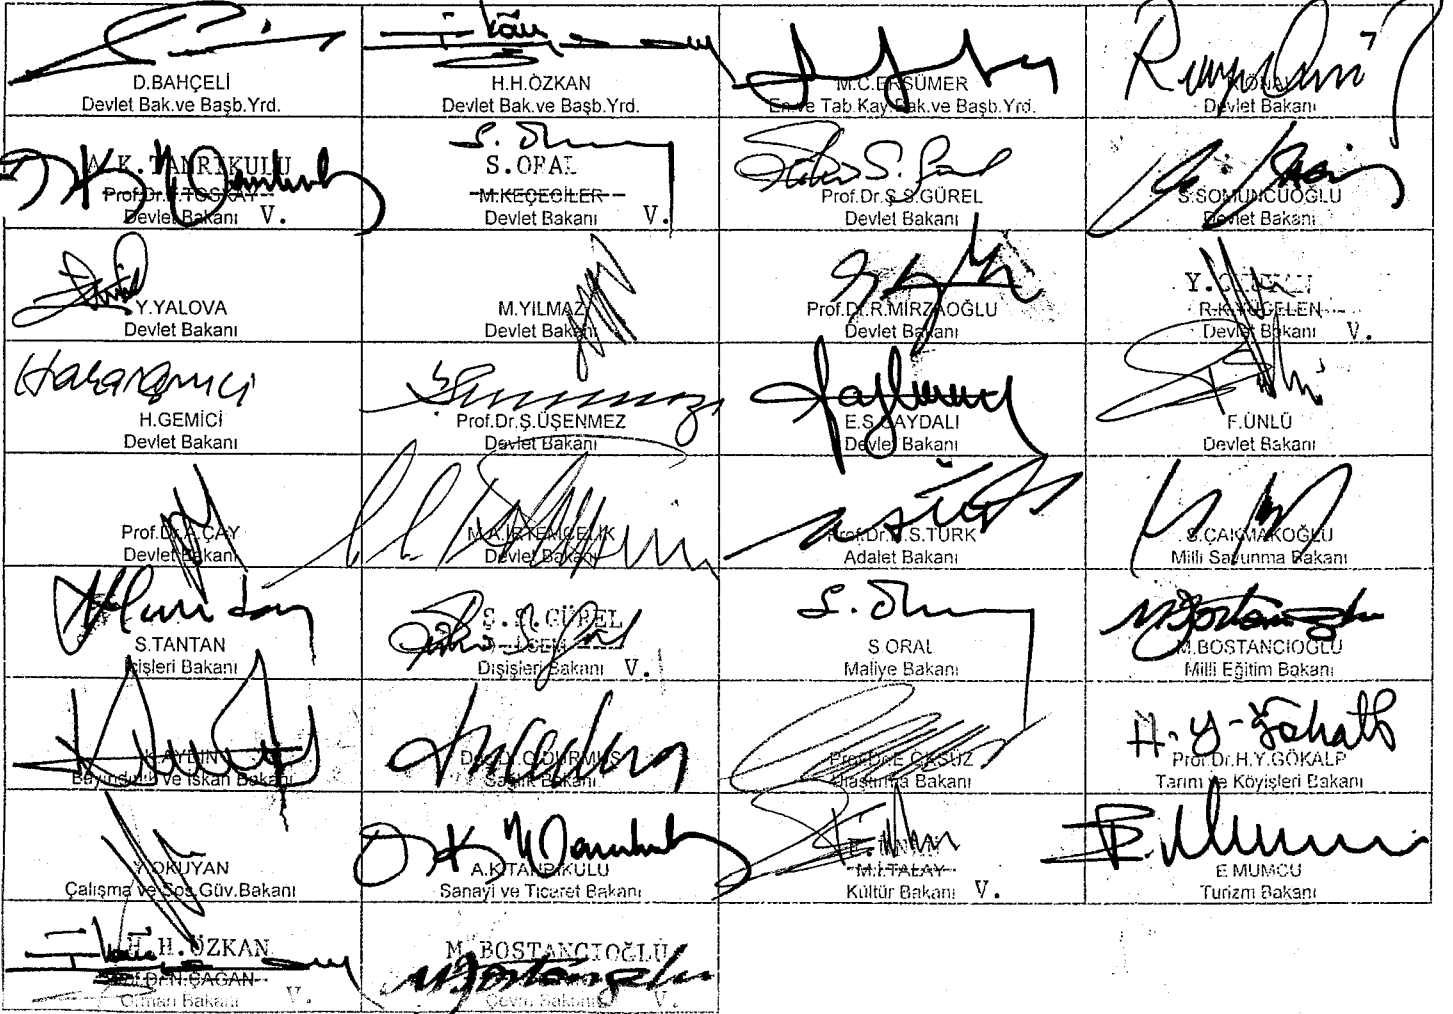 D.BAHÇELİ
Devlet Bak.ve Başb.Yrd.
H.H.ÖZKAN
Devlet Bak.ve Başb.Yrd.
M.C.ERSÜMER
En.ve Tab.Kay.Bak.ve Başb.Yrd.
Devlet Bakanı
A.K.TANRIKULU
Prof.Dr.T.TOSKAY
Devlet Bakanı V.
S.ORAL
M.KEÇECİLER
Devlet Bakanı V.
Prof.Dr.Ş.S.GÜREL
Devlet Bakanı
S.SOMUNCUOĞLU
Devlet Bakanı
Y.YALOVA
Devlet Bakanı
M.YILMAZ
Devlet Bakanı
Prof.Dr.R.MİRZAOĞLU
Devlet Bakanı
R.K.YÜCELEN
Devlet Bakanı V.
H.GEMİCİ
Devlet Bakanı
Prof.Dr.Ş.ÜŞENMEZ
Devlet Bakanı
E.S.GAYDALI
Devlet Bakanı
F.ÜNLÜ
Devlet Bakanı
Prof.Dr.A.ÇAY
Devlet Bakanı
M.A.İRTEMÇELİK
Devlet Bakanı
Prof.Dr.H.S.TÜRK
Adalet Bakanı
S.ÇAKMAKOĞLU
Milli Savunma Bakanı
S.TANTAN
İçişleri Bakanı
Ş.S.GÜREL
İ.CEM
Dışişleri Bakanı V.
S.ORAL
Maliye Bakanı
M.BOSTANCIOĞLU
Milli Eğitim Bakanı
K.AYDIN
Bayındırlık ve İskan Bakanı
Doç.Dr.O.DURMUŞ
Sağlık Bakanı
Ulaştırma Bakanı
Prof.Dr.H.Y.GÖKALP
Tarım ve Köyişleri Bakanı
Y.OKUYAN
Çalışma ve Sos.Güv.Bakanı
A.K.TANRIKULU
Sanayi ve Ticaret Bakanı
M.İ.TALAY
Kültür Bakanı V.
E.MUMCU
Turizm Bakanı
H.H.ÖZKAN
Orman Bakanı V.
M.BOSTANCIOĞLU
Çevre Bakanı V.